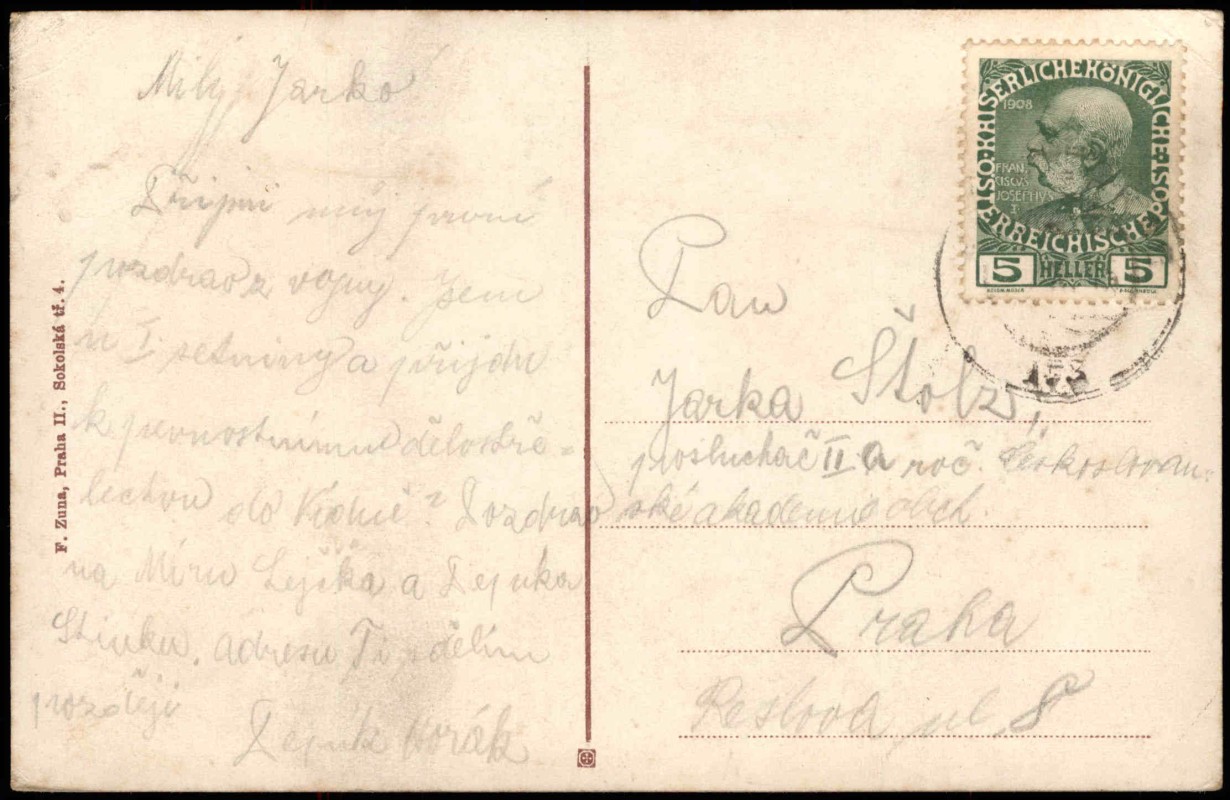 Milý Jarko
Přijmi můj první
pozdrav z vojny. Jsem
u I. setniny a přijdu
k pevnostnímu dělostře-
lectvu do Vídně? Pozdrav
na Míru Ješka a Pepíka
adresu Ti sdělím
později
Pepík Horák
F. Zuna, Praha II., Sokolská tř. 4.
KAISERLICHE KÖNIGLICHE ÖSTERREICHISCHE
1908
FRAN
CISCVS
JOSEPHVS
I
5 HELLER 5
Pan
Jarka Štolz,
posluchač II A roč. Českoslovan-
ské akademie obch.
Praha
Resslova ul 8